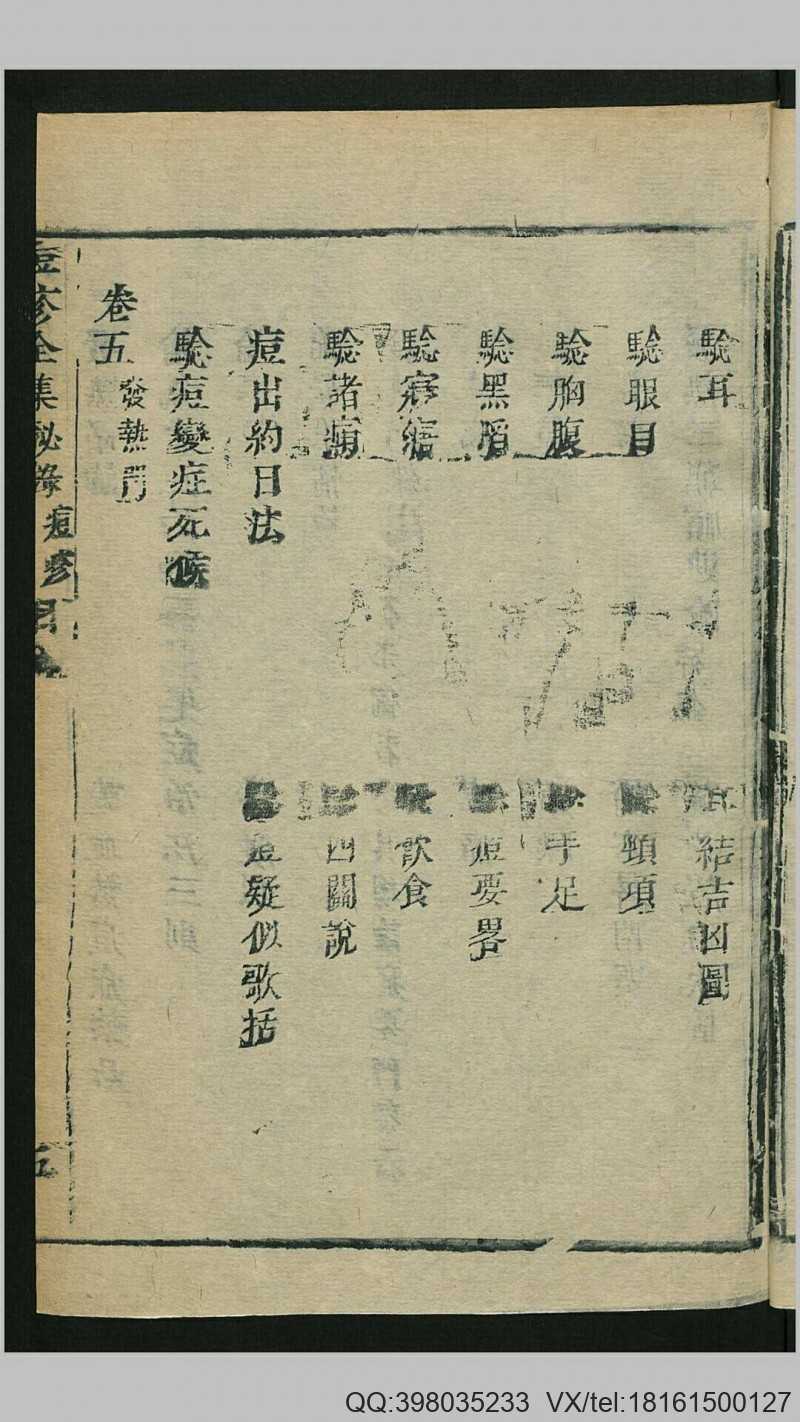 驗耳
耳結吉凶圖
驗眼目
頸項
驗胸腹
手足
驗黑陷
痘要畧
驗寤寐
飲食
驗諸痛
四關說
痘出約日法
痘疑似歌括
驗痘變症死候
卷五 發熱門
痘疹全集秘錄 痘疹目
五
QQ:398035233 VX/tel:18161500127